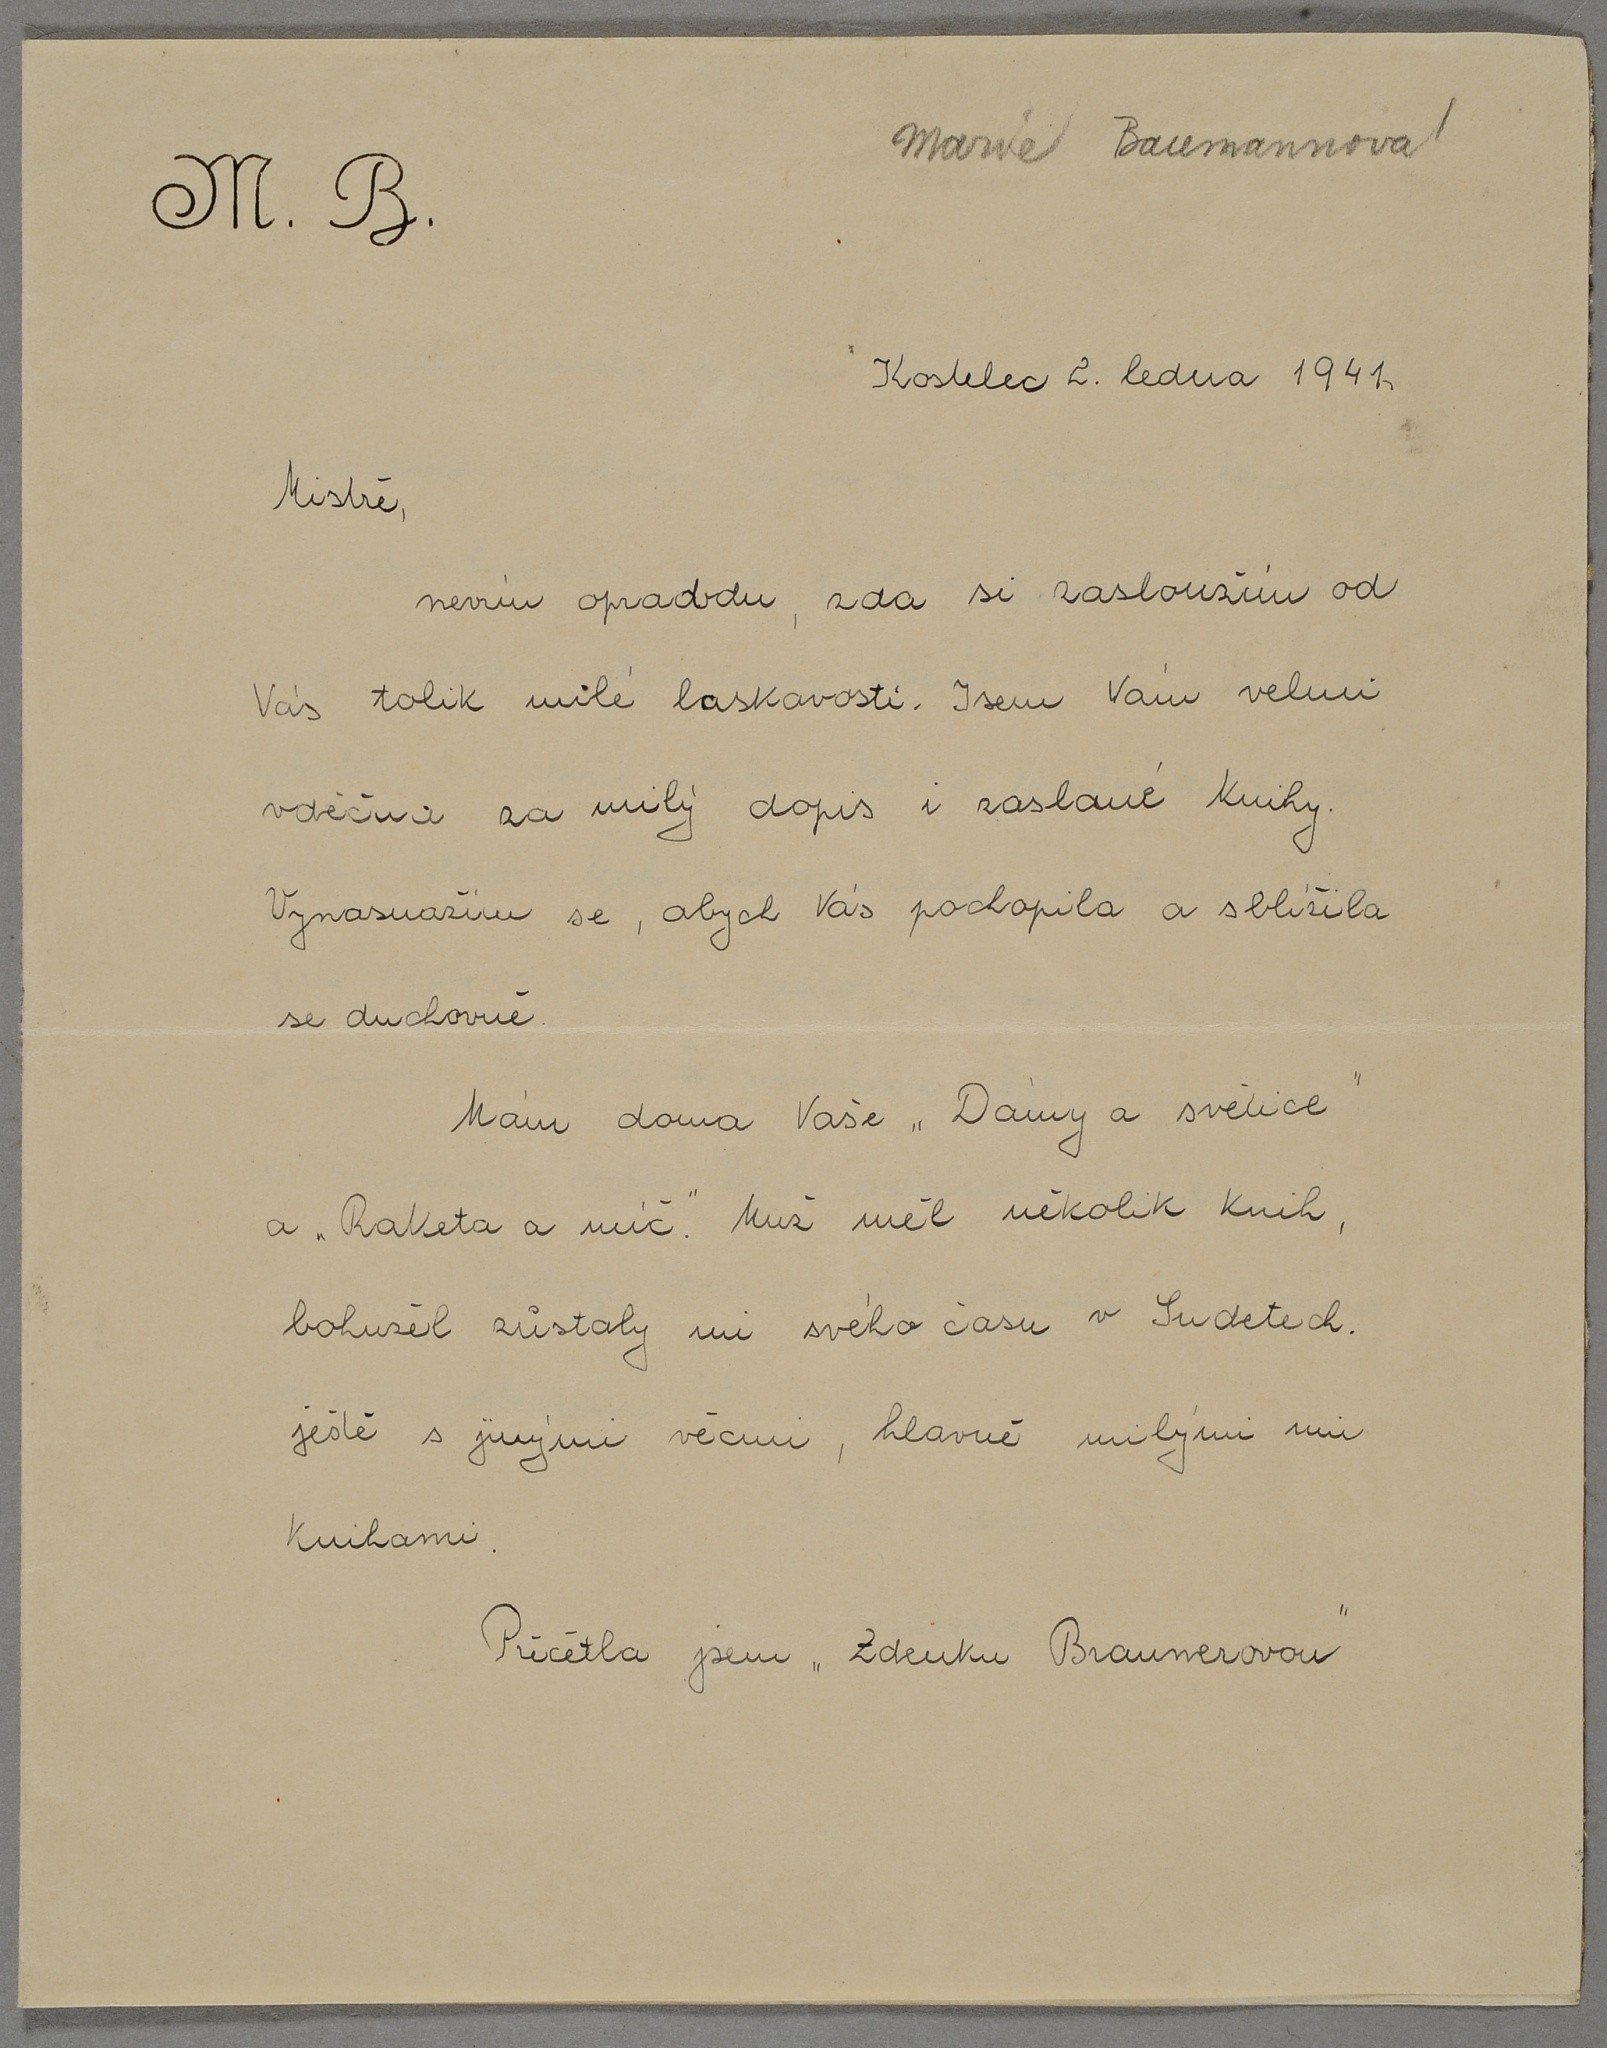 Marie Baumannová
M. B.
Kostelec 2. ledna 1941.
Mistře,
nevím opradvdu, zda si zasloužím od
Vás tolik milé laskavosti. Jsem Vám velmi
vděčna za milý dopis i zaslané knihy.
Vynasnažím se, abych Vás pochopila a sblížila
se duchovně.
Mám doma Vaše „Dámy a světice"
a „Raketa a míč". Muž měl několik knih,
bohužel zůstaly mi svého času v Sudetech.
ještě s jinými věcmi, hlavně milými mi
knihami.
Přečetla jsem „Zdenku Braunerovou"